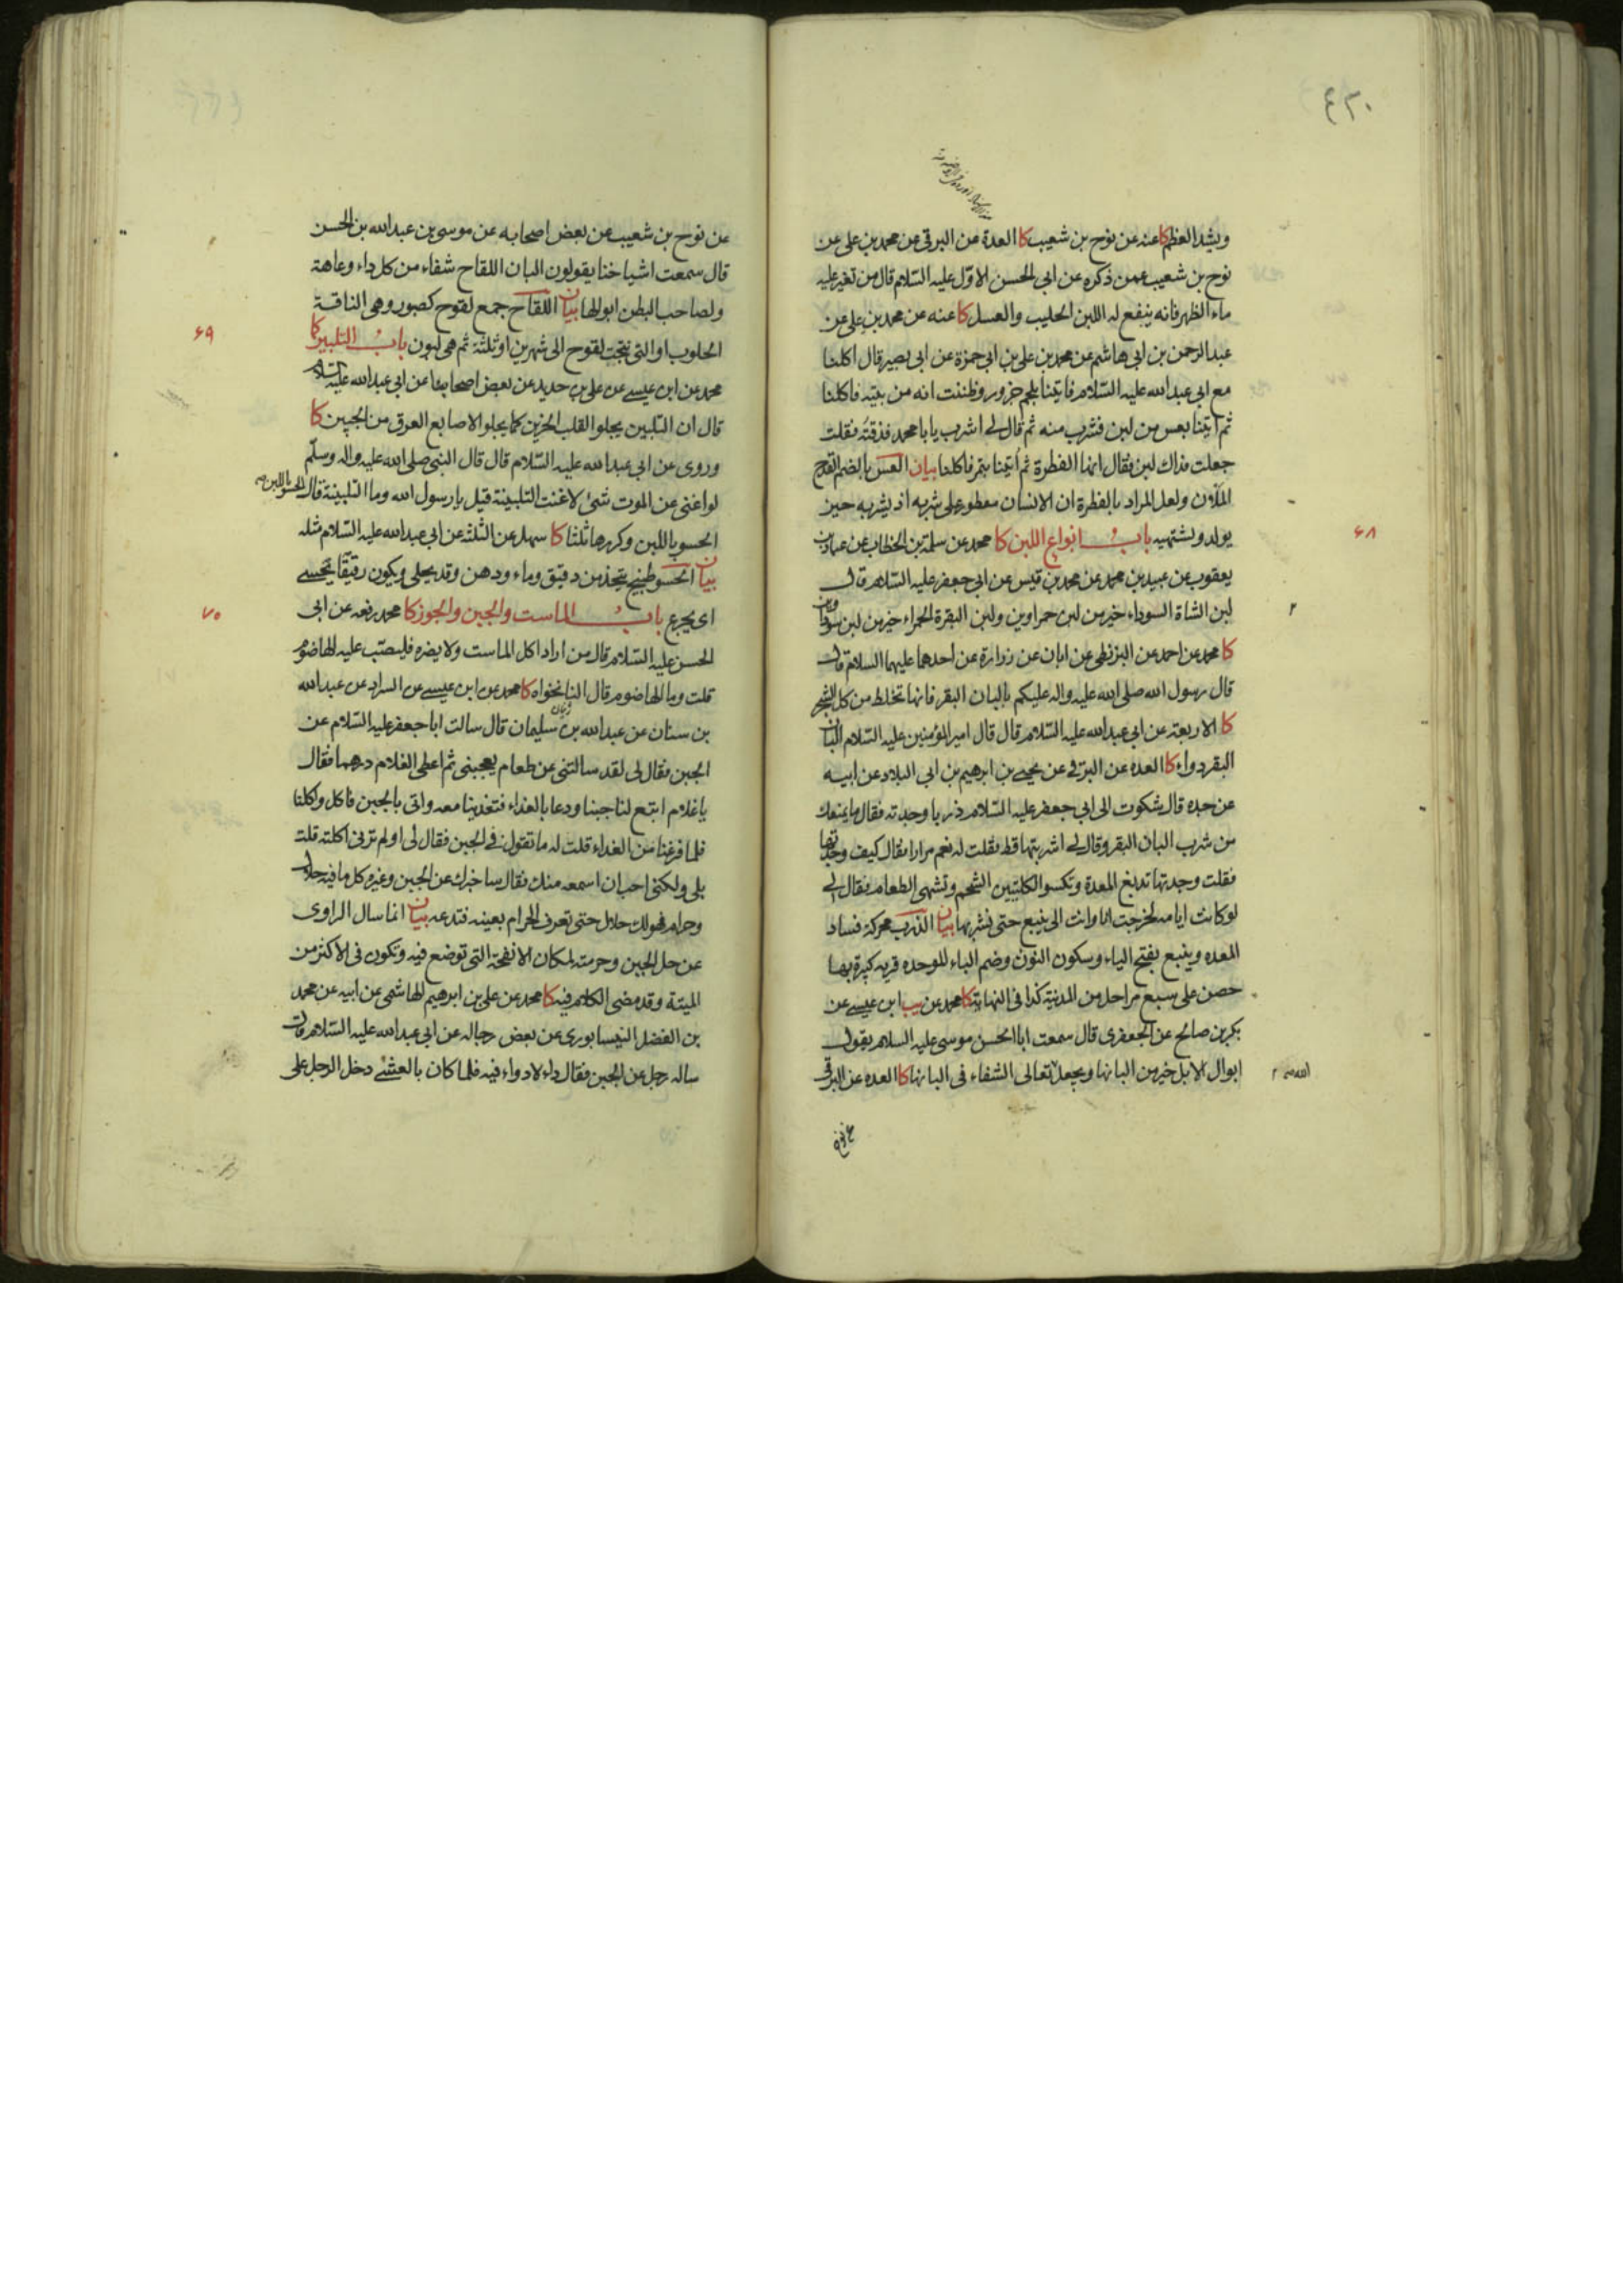 ٤٢٠
ويشد العظم كا عنه عن نوح بن شعيب كا العدة عن البرقى عن محمد بن على عن
نوح بن شعيب عمن ذكره عن ابى الحسن الاوّل عليه السّلام قال من تغير عليه
ماء الظهر فانه ينفع له اللبن الحليب والعسل كا عنه عن محمد بن على عن
عبد الرحمن بن ابى هاشم عن محمد بن على بن ابى حمزة عن ابى بصير قال اكلنا
مع ابى عبد الله عليه السّلام فاتينا بلحم جزور وظننت انه من بيته فاكلنا
ثم اتينا بعس من لبن فشرب منه ثم قال لى اشرب يا با محمد فذقته فقلت
جعلت فداك لبن فقال انها الفطرة ثم اتينا بتمر فاكلنا بيان العس بالضم القدح
الملآن ولعل المراد بالفطرة ان الانسان مفطور على شربه اذ يشربه حين
يولد ويشتهيه باب انواع اللبن كا محمد عن سلمة بن الخطاب عن عباد بن
٦٨
يعقوب عن عبيد بن محمد عن محمد بن قيس عن ابى جعفر عليه السّلام قال
لبن الشاة السوداء خير من لبن حمراوين ولبن البقرة الحمراء خير من لبن سوداوين
كا محمد عن احمد عن البزنطى عن ابان عن زرارة عن احدهما عليهما السّلام قال
قال رسول الله صلى الله عليه واله عليكم بالبان البقر فانها تخلط من كل الشجر
كا الاربعة عن ابى عبد الله عليه السّلام قال قال امير المؤمنين عليه السّلام البان
البقر دواء كا العده عن البرقى عن يحيى بن ابرهيم بن ابى البلاد عن ابيه
عن جده قال شكوت الى ابى جعفر عليه السّلام ذربا وجدته فقال ما يمنعك
من شرب البان البقر وقال لى اشربتها قط فقلت له نعم مرارا فقال كيف وجدتها
فقلت وجدتها تدبغ المعدة وتكسو الكليتين الشحم وتشهى الطعام فقال لى
لو كانت ايامه لخرجت انا وانت الى ينبع حتى نشربها بيان الذرب محركة فساد
المعده وينبع بفتح الياء وسكون النون وضم الباء الموحده قرية كبيرة بها
حصن على سبع مراحل من المدينة كذا فى النهاية كا محمد عن يب ابن عيسى عن
بكر بن صالح عن الجعفرى قال سمعت ابا الحسن موسى عليه السّلام يقول
ابوال الابل خير من البانها ويجعل تعالى الشفاء فى البانها كا العده عن البرقى
الله
عن نوح
عن نوح بن شعيب عن بعض اصحابه عن موسى بن عبد الله بن الحسن
قال سمعت اشياخنا يقولون البان اللقاح شفاء من كل داء وعاهة
ولصاحب البطن ابوالها بيان اللقاح جمع لقوح كصبور وهى الناقة
الحلوب او التى نتجت لقوح الى شهرين او ثلثة ثم هى لبون باب التلبين كا
٦٩
محمد عن ابن عيسى عن على بن حديد عن بعض اصحابنا عن ابى عبد الله عليه السّلام
قال ان التلبين يجلو القلب الحزين كما يجلو الاصابع العرق من الجبين كا
وروى عن ابى عبد الله عليه السّلام قال قال النبى صلى الله عليه واله وسلّم
لو اغنى عن الموت شئ لاغنت التلبينة قيل يا رسول الله وما التلبينة قال الحسو باللبن
الحسو باللبن وكررها ثلثا كا سهل عن الثلثة عن ابى عبد الله عليه السّلام مثله
بيان الحسو طبيخ يتخذ من دقيق وماء ودهن وقد يحلى ويكون رقيقا يحسى
اى يجرع باب الماست والجبن والجوز كا محمد رفعه عن ابى
٧٠
الحسن عليه السّلام قال من اراد اكل الماست ولا يضره فليصبّ عليه الهاضوم
قلت وما الهاضوم قال النانخواه كا محمد عن ابن عيسى عن السراد عن عبد الله
بن سنان عن عبد الله بن سليمان قال سالت ابا جعفر عليه السّلام عن
الجبن فقال لى لقد سالتنى عن طعام يعجبنى ثم اعطى الغلام درهما فقال
يا غلام ابتع لنا جبنا ودعا بالغداء فتغدينا معه واتى بالجبن فاكل واكلنا
فلما فرغنا من الغداء قلت له ما تقول فى الجبن فقال لى اولم ترنى اكلته قلت
بلى ولكنى احب ان اسمعه منك فقال ساخبرك عن الجبن وغيره كل ما فيه حلال
وحرام فهو لك حلال حتى تعرف الحرام بعينه فتدعه بيان انما سال الراوى
عن حل الجبن وحرمته لمكان الانفحة التى توضع فيه وتكون فى الاكثر من
الميتة وقد مضى الكلام فيه كا محمد عن على بن ابرهيم الهاشمى عن ابيه عن محمد
بن الفضل النيسابورى عن بعض رجاله عن ابى عبد الله عليه السّلام قال
ساله رجل عن الجبن فقال داء لا دواء فيه فلما كان بالعشى دخل الرجل على